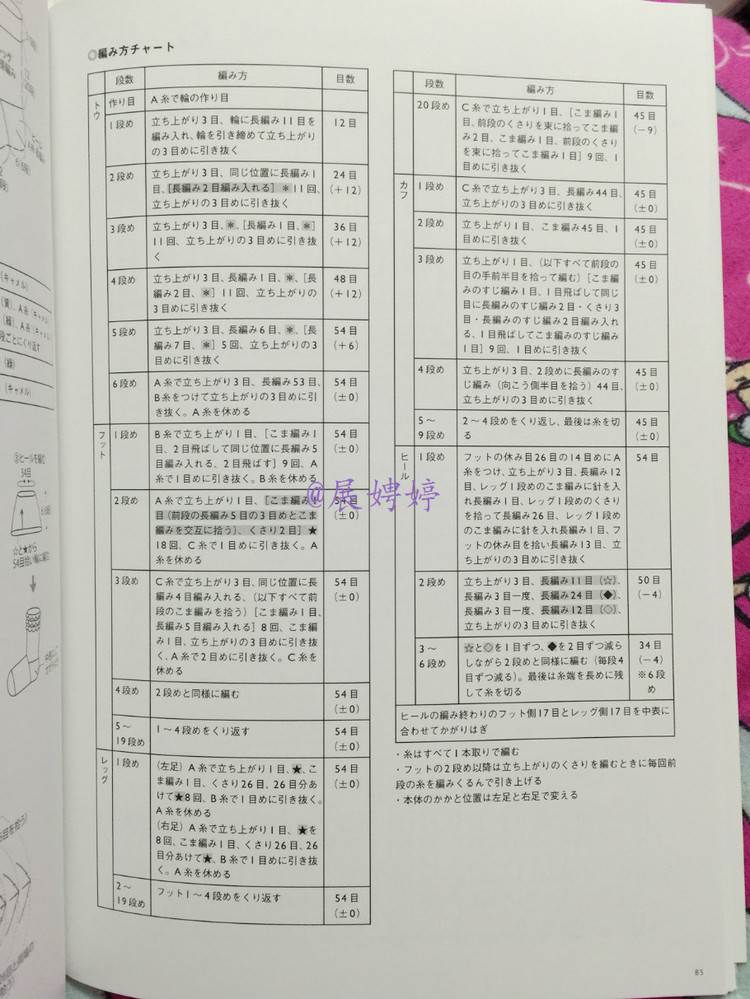 ◎編み方チャート
段数 編み方 目数
トウ
作り目 A糸で輪の作り目
1段め 立ち上がり3目、輪に長編み11目を 12目
編み入れ、輪を引き締めて立ち上がり
の3目めに引き抜く
2段め 立ち上がり3目、同じ位置に長編み1 24目
目、[長編み2目編み入れる]※11回、 (+12)
立ち上がりの3目めに引き抜く
3段め 立ち上がり3目、※、[長編み1目、※] 36目
11回、立ち上がりの3目めに引き抜 (+12)
く
4段め 立ち上がり3目、長編み1目、※、[長 48目
編み2目、※]11回、立ち上がりの (+12)
3目めに引き抜く
5段め 立ち上がり3目、長編み6目、※、[長 54目
編み7目、※]5回、立ち上がりの3 (+6)
目めに引き抜く
6段め A糸で立ち上がり3目、長編み53目、 54目
B糸をつけて立ち上がりの3目めに引 (±0)
き抜く。A糸を休める
フット
1段め B糸で立ち上がり1目、[こま編み1 54目
目、2目飛ばして同じ位置に長編み5 (±0)
目編み入れる、2目飛ばす]9回、A
糸で1目めに引き抜く。B糸を休める
2段め A糸で立ち上がり1目、[こま編み1 54目
目(前段の長編み5目の3目めとこま (±0)
編みを交互に拾う)、くさり2目]★
18回、C糸で1目めに引き抜く。A
糸を休める
3段め C糸で立ち上がり3目、同じ位置に長 54目
編み4目編み入れる、(以下すべて前 (±0)
段のこま編みを拾う)[こま編み1目、
長編み5目編み入れる]8回、こま編
み1目、立ち上がりの3目めに引き抜
く、A糸で2目めに引き抜く。C糸を
休める
4段め 2段めと同様に編む 54目
(±0)
5～ 1～4段めをくり返す 54目
19段め (±0)
レッグ
1段め (左足)A糸で立ち上がり1目、★、こ 54目
ま編み1目、くさり26目、26目分あ (±0)
けて★8回、B糸で1目めに引き抜く。
A糸を休める
(右足)A糸で立ち上がり1目、★を
8回、こま編み1目、くさり26目、26
目分あけて★、B糸で1目めに引き抜
く。A糸を休める
2～ フット1～4段めをくり返す 54目
19段め (±0)
段数 編み方 目数
20段め C糸で立ち上がり1目、[こま編み1 45目
目、前段のくさりを束に拾ってこま編 (−9)
み2目、こま編み1目、前段のくさり
を束に拾ってこま編み1目]9回、1
目めに引き抜く
カフ
1段め C糸で立ち上がり3目、長編み44目、 45目
立ち上がりの3目めに引き抜く (±0)
2段め 立ち上がり1目、こま編み45目、1 45目
目めに引き抜く (±0)
3段め 立ち上がり1目、(以下すべて前段の 45目
目の手前半目を拾って編む)[こま編 (±0)
みのすじ編み1目、1目飛ばして同じ
目に長編みのすじ編み2目・くさり3
目・長編みのすじ編み2目編み入れ
る、1目飛ばしてこま編みのすじ編み
1目]9回、1目めに引き抜く
4段め 立ち上がり3目、2段めに長編みのす 45目
じ編み(向こう側半目を拾う)44目、 (±0)
立ち上がりの3目めに引き抜く
5～ 2～4段めをくり返し、最後は糸を切 45目
9段め る (±0)
ヒール
1段め フットの休み目26目の14目めにA 54目
糸をつけ、立ち上がり3目、長編み12
目、レッグ1段めのこま編みに針を入
れ長編み1目、レッグ1段めのくさり
を拾って長編み26目、レッグ1段め
のこま編みに針を入れ長編み1目、フ
ットの休み目を拾い長編み13目、立
ち上がりの3目めに引き抜く
2段め 立ち上がり3目、長編み11目(☆)、 50目
長編み3目一度、長編み24目(◆)、 (−4)
長編み3目一度、長編み12目(◇)、
立ち上がりの3目めに引き抜く
3～ ☆と◇を1目ずつ、◆を2目ずつ減ら 34目
6段め しながら2段めと同様に編む(毎段4 (−4)
目ずつ減る)。最後は糸端を長めに残 ※6段
して糸を切る め
ヒールの編み終わりのフット側17目とレッグ側17目を中表に
合わせてかがりはぎ
・糸はすべて1本取りで編む
・フットの2段め以降は立ち上がりのくさりを編むときに毎回前
段の糸を編みくるんで引き上げる
・本体のかかと位置は左足と右足で変える
85
@展娉婷
(キャメル)
(黄)、A糸(キャメル)
(緑)、A糸(キャメル)
段ごとにくり返す
(緑)
(キャメル)
③ヒールを編む
54目
☆と★から
54目拾い輪に編む